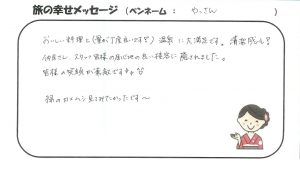 旅の幸せメッセージ (ペンネーム: やっさん )
おいしい料理と(量が丁度良いです♡) 温泉 に大満足です。清潔感も!
仲居さん、スタッフ皆様の居心地の良い接客に癒されました。
皆様の笑顔が素敵ですネ♡
緑のカメムシ見てみたかったです〜